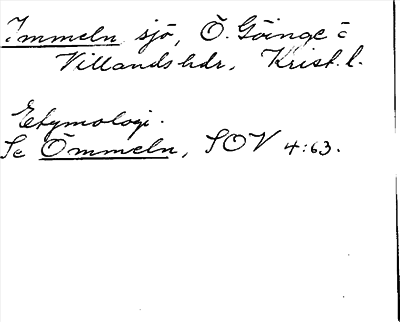 Immeln sjö, Ö. Göinge o
Villands hdr, Krist. l.
Etymologi.
Se Ömmeln, SOV 4:63.